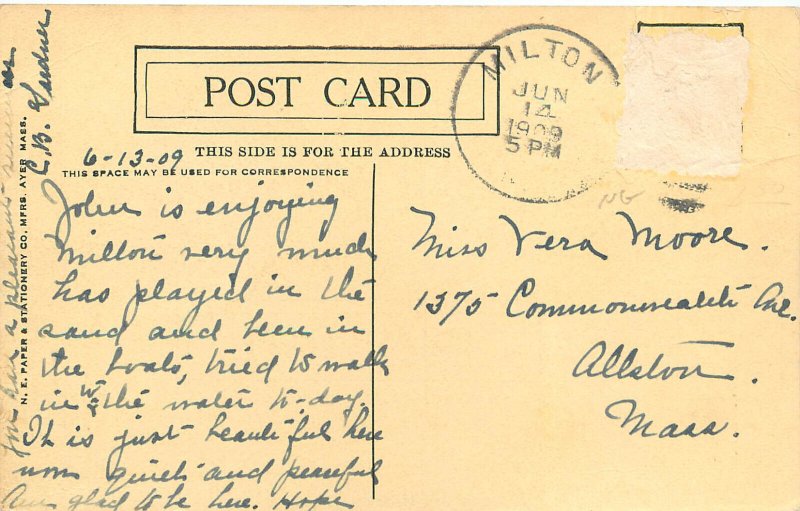 POST CARD
THIS SIDE IS FOR THE ADDRESS
MILTON
JUN
14
1909
5 PM
6-13-09
THIS SPACE MAY BE USED FOR CORRESPONDENCE
John is enjoying
Milton very much
has played in the
sand and been in
the boats, tried to walk
in the water to-day.
It is just beautiful here
now quiet and peaceful
Am glad to be here. Hope
you have a pleasant summer
C. B. Gardner
Miss Vera Moore.
1375 Commonwealth Ave.
Allston.
Mass.
NG
N. E. PAPER & STATIONERY CO., MFRS. AYER MASS.